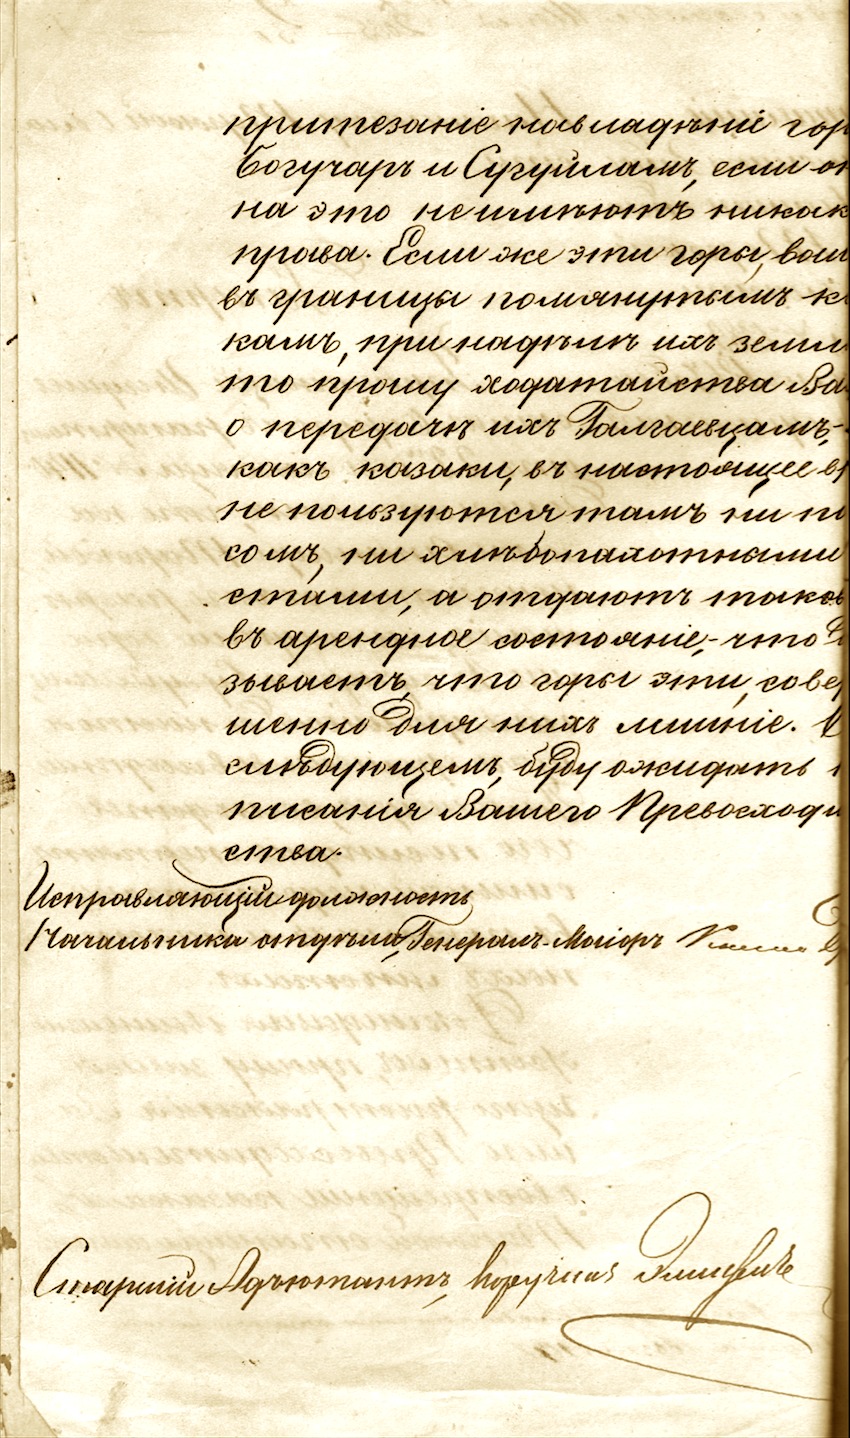 притезаніе на владѣніе гор
Богучаръ и Сугуйламъ, если он
на это не имѣютъ никак
права. Если же эти горы, вош
въ границы помянутымъ к
камъ, при надѣлѣ ихъ земл
то прошу ходатайства Ва
о передачѣ ихъ Галгаевцамъ,-
какъ казаки, въ настоящее вр
не пользуются тамъ ни по
сомъ, ни хлѣбопахотными
стами, а отдаютъ таков
въ арендное состояніе,- что д
зываетъ, что горы эти, совер
шенно для нихъ лишніе.
слѣдующемъ, буду ожидать
писанія Вашего Превосходи
ства.
Исправляющій должность
Начальника отдѣла, Генералъ-Маіоръ
Старшій Адъютантъ, Поручикъ